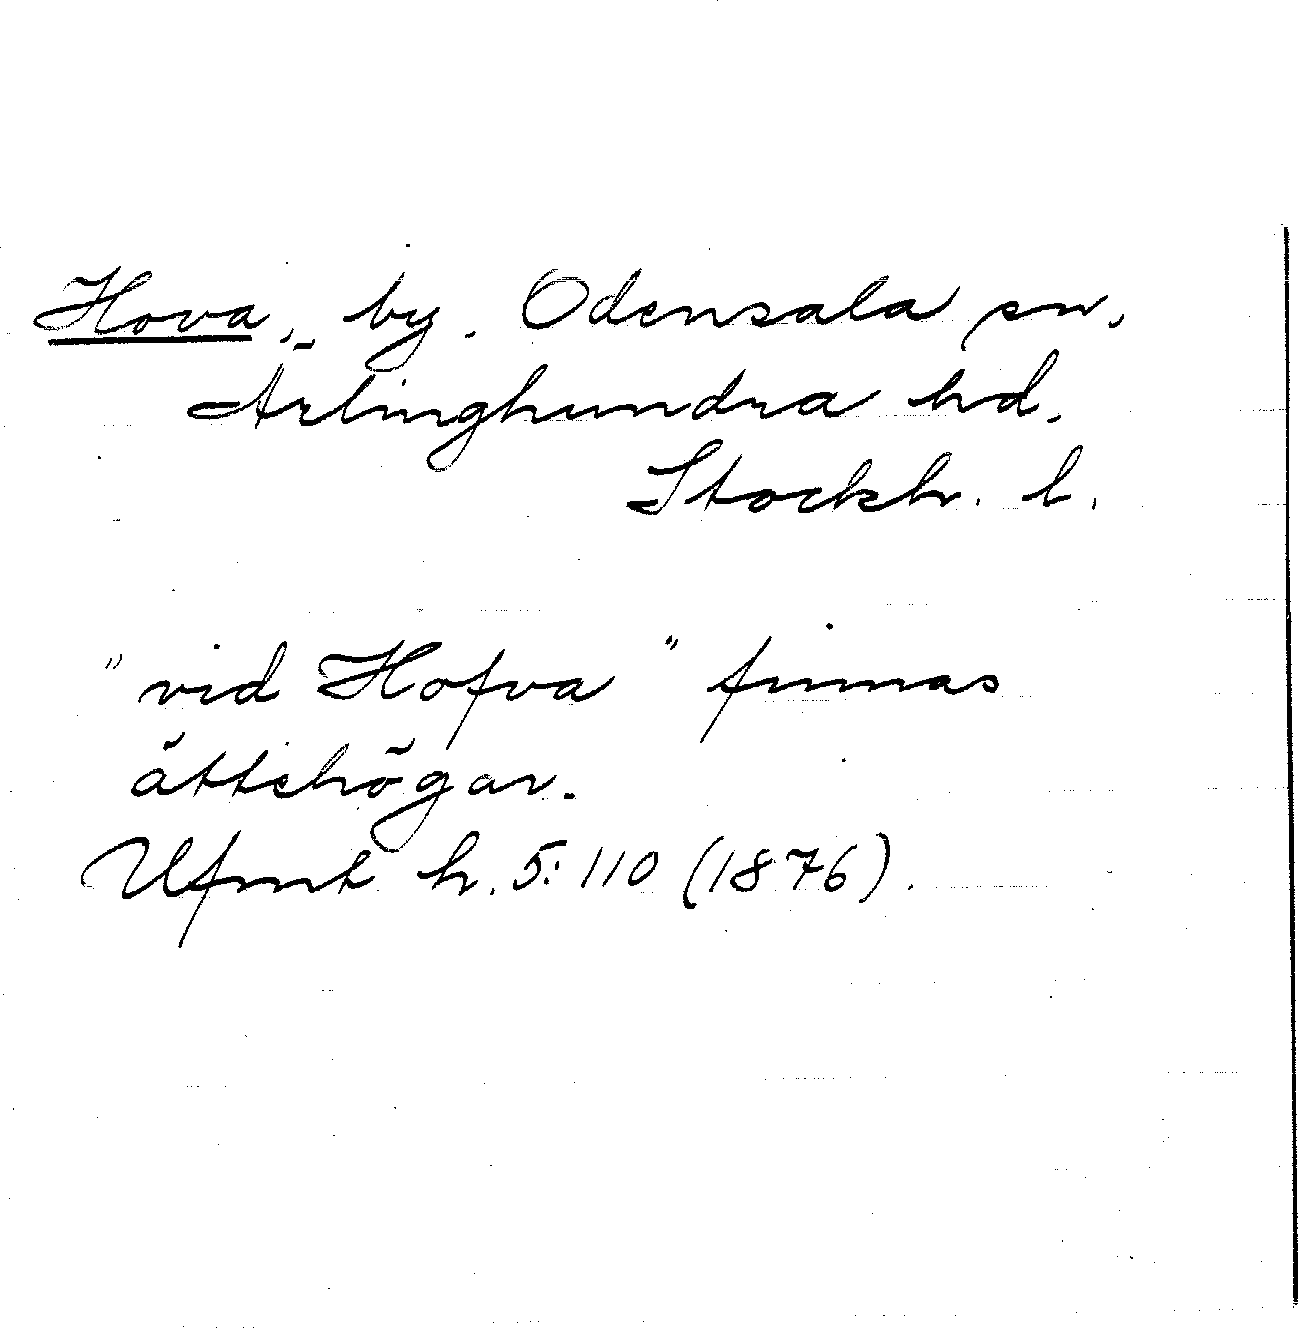 Hova, by. Odensala sn,
Ärlinghundra hd.
Stockh. l.
"vid Hofva" finnas
ättehögar.
Ufmt h. 5:110 (1876).